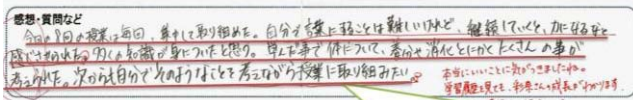 感想・質問など
今回の8回の授業は毎回、集中して取り組めた。自分で言葉に残ることは難しいけれど、継続していくと、力になるなと
感じさせられた。多くの知識が身についたと思う。学んだ事で体について、養分や消化とにかくたくさんの事が
考えられた。次からも自分でそのようなことを考えながら授業に取り組みたい
本当にいいことに気がつきましたね。
学習履歴を見ても、彩菜さんの成長がわかります